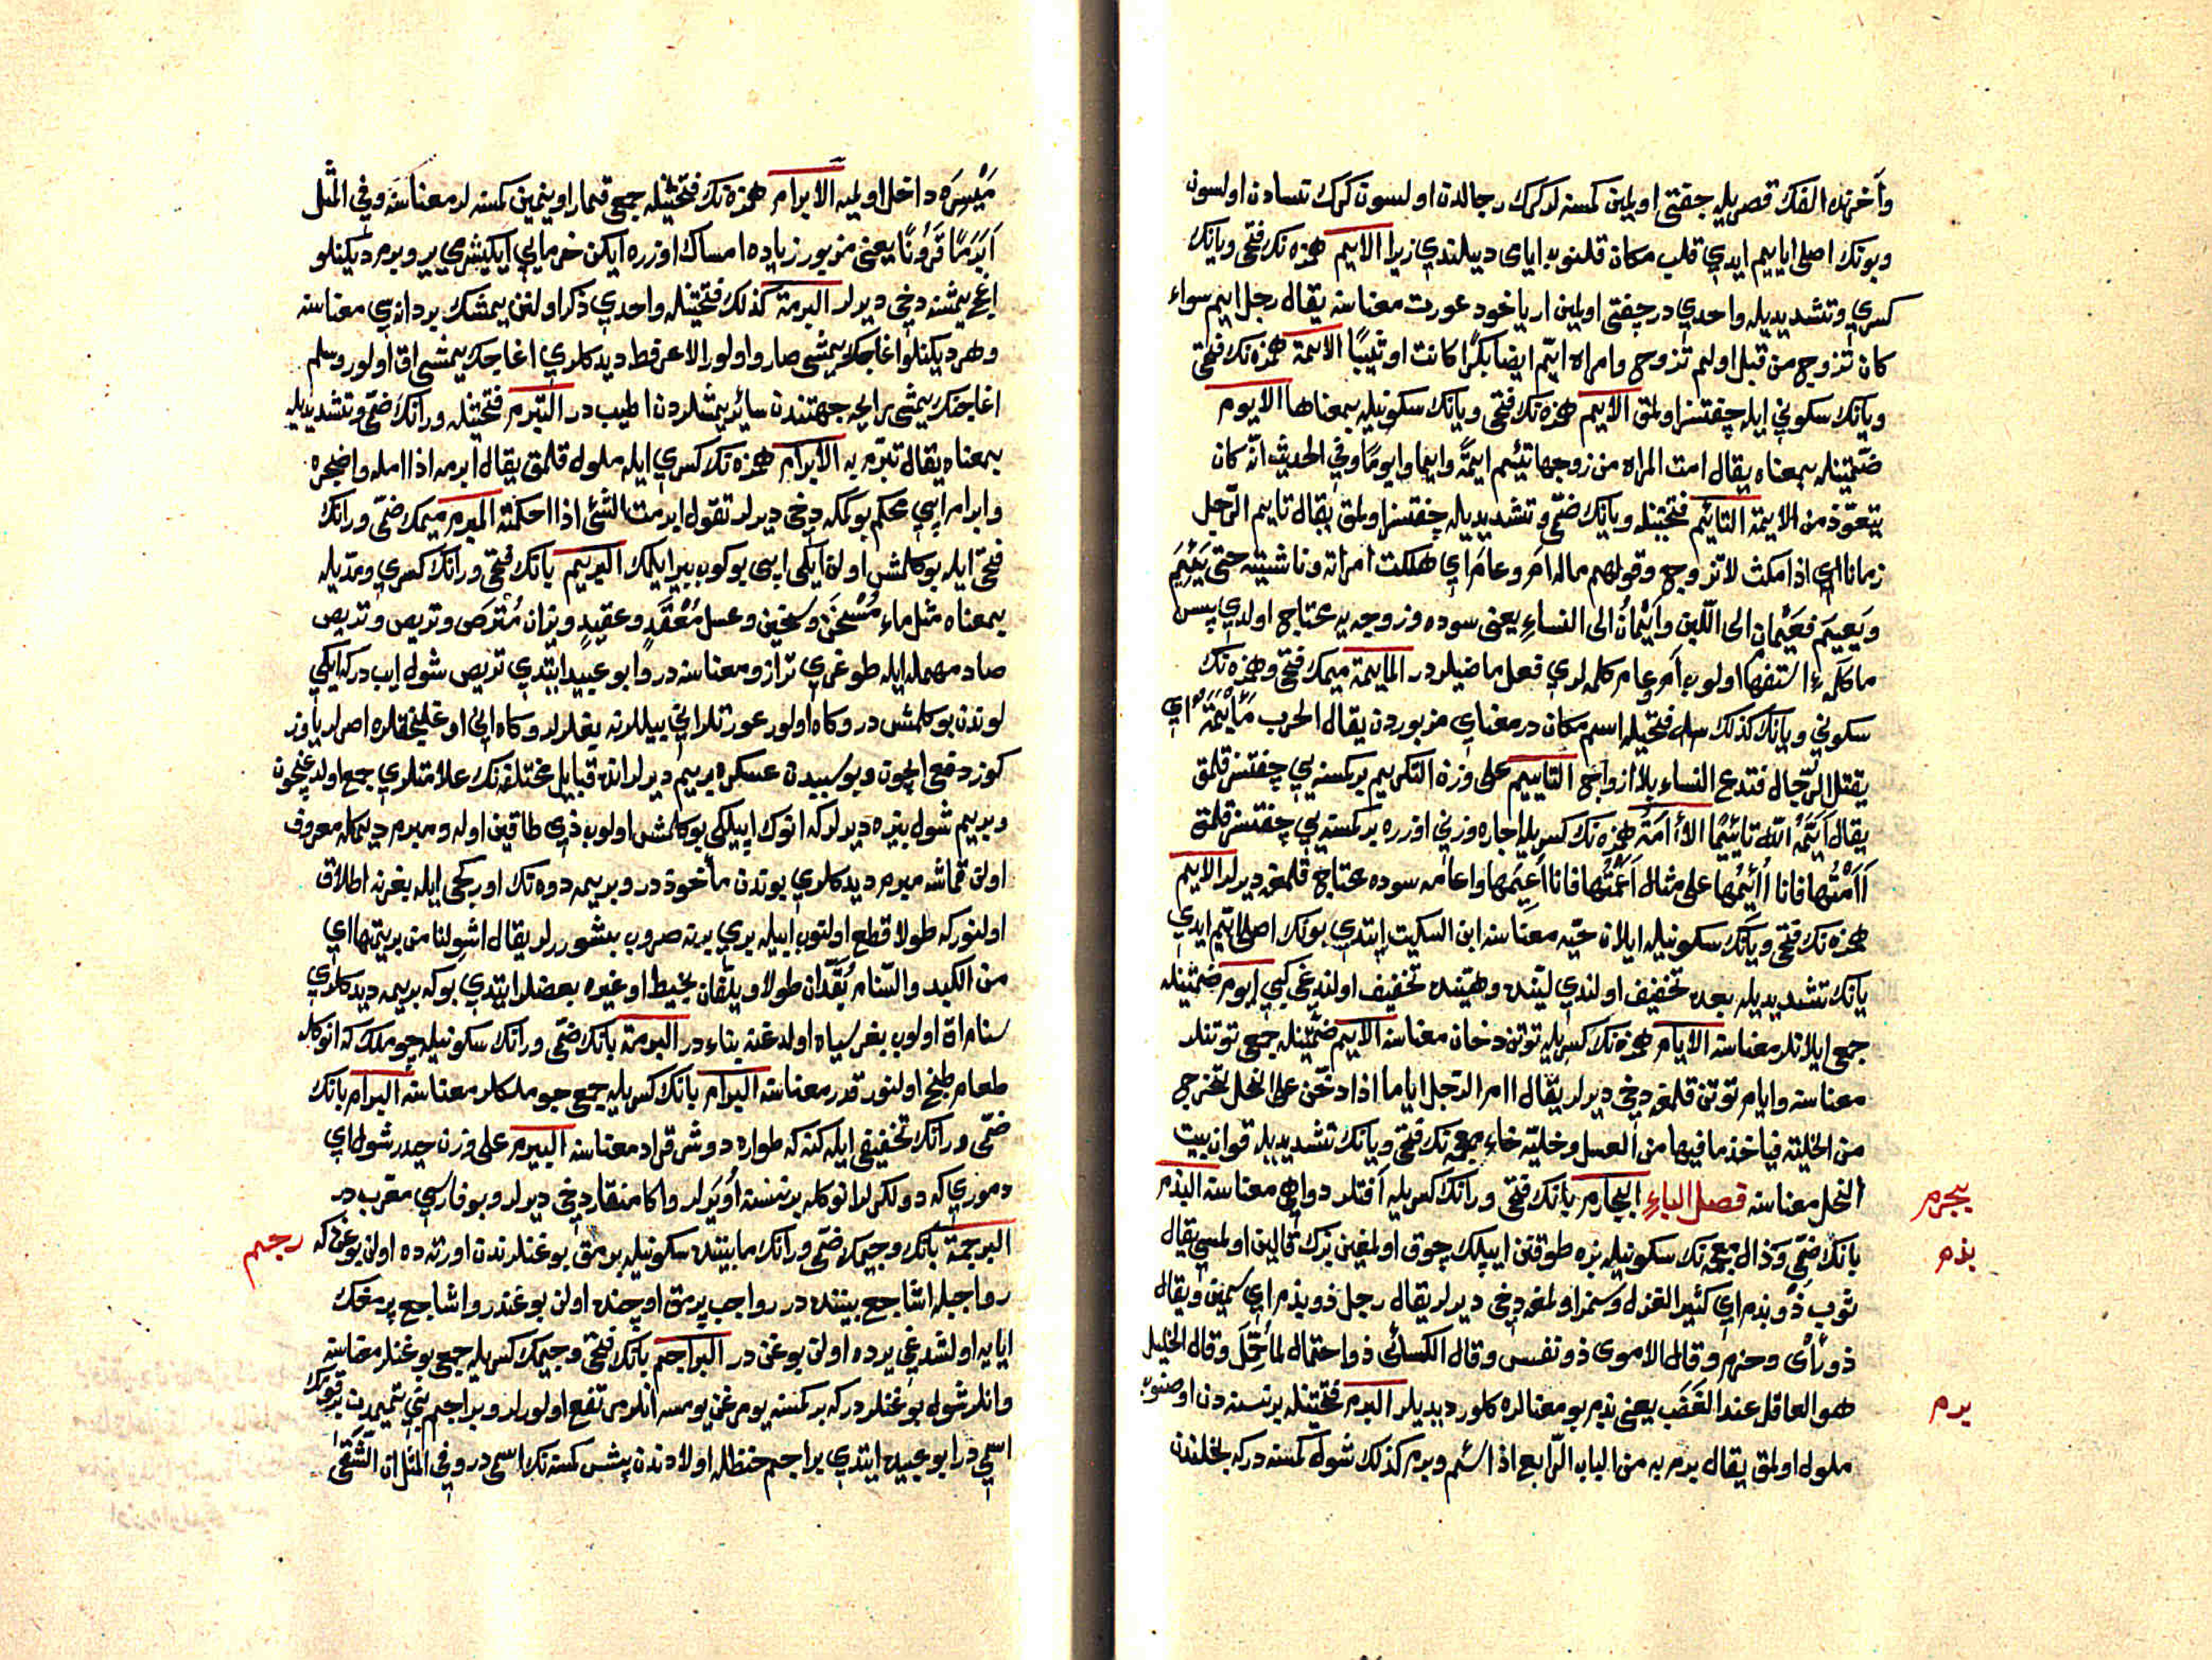 وآخرنده الفك قصريله جفتى اولمين كمسنه لر كرك رجالدن اولسون كرك نسادن اولسون
وبونك اصلى اياييم ايدي قلب مكان قلنوب ايامى دينلندي زيرا الايم همزه نك فتحى ويانك
كسري وتشديديله واحدي در چفتى اولمين ار ياخود عورت معناسنه يقال رجل ايم سواء
كان تزوج من قبل اولم تزوج وامراة ايّم ايضا بكرًا كانت او ثيبًا الايمة همزه نك فتحى
ويانك سكوني ايله چفتسز اولمق الايم همزه نك فتحى ويانك سكونيله بمعناها الايوم
ضمّتينله بمعناه يقال امت المراه من زوجها تئيم ايمةً وايما وايومًا وفي الحديث انّه كان
يتعوّذ من الايمة التايّم فتحتينله ويانك ضمّى وتشديديله چفتسز اولمق يقال تايم الرّجل
زمانا اي اذا مكث لا تزوج وقولهم ماله امَ وعامَ اي هلكت امراته وماشيته حتى يَئِيمَ
ويَعيمَ فعَيْمان الى اللّبن وأيْمانُ الى النساءِ يعنى سوده وزوجه يه محتاج اولدي پس
ما كلمهء استفها اولوب آم عام كلمه لري فعل ماضيلردر المايمة ميمك فتحى وهمزه نك
سكوني ويانك كذلك فتحيله اسم مكان در معناي مزبوردن يقال الحرب مَأْيَمَةٌ اي
يقتل الرّجال فتدع النساء بلا ازواج التاييم على وزن التكريم بر كمسنه يي چفتسز قلمق
يقال اَيَّمَهُ اللّه تائيمًا الأامَةُ همزه نك كسريله اجاره وزني اوزره بر كمسنه يي چفتسز قلمق
أَأَمْتُها فانا أُئيمُها على مثال اَعَمْتُها فانا اُعيمُها واعامه سوده محتاج قلمغه ديرلر الايم
همزه نك فتحى ويانك سكونيله ايلان حيّه معناسنه ابن السكيت ايتدي بونك اصلى ايّم ايدي
يانك تشديديله بعده تخفيف اولندي ليّنده وهيّنده تخفيف اولندغى كبي ايوم ضمّتينله
جمعى ايلانلر معناسنه الايام همزه نك كسريله توتن دخان معناسنه الايم ضمّتينله جمعى توتنلر
معناسنه وايام توتن قلمغه دخى ديرلر يقال اام الرّجل اياما اذا دخّن على النحل لتخرج
من الخليّة فياخذ ما فيها من العسل وخليّه خاء معجمه نك فتحى ويانك تشديديله قوان بيت
النحل معناسنه فصل الباءِ البجارم بانك فتحى ورانك كسريله آفتلر دواهى معناسنه البذم
بانك ضمّى وذال معجمه نك سكونيله بزه طوقنن ايپلك چوق اولمغين بزك قالين اولمسي يقال
ثوب ذو بذم اي كثير الغزل وسمز اولمغه دخى ديرلر يقال رجل ذو بذم اي سمين ويقال
ذو رأى وحزم وقال الاموى ذو نفس وقال الكسائى ذو احتمال لما حُمِّلَ وقال الخليل
هو العاقل عند الغَضَب يعنى بذم بو معنالره كلور ديديلر البرم فتحتينله بر نسنه دن اوصنوب
ملول اولمق يقال برم به من الباب الرّابع اذا سئم وبرم كذلك شول كمسنه دركه بخلندن
يجرم
بذم
برم
مَيْسِرَه داخل اولميه الابرام همزه نك فتحيله جمعى قمار اوينمين كمسنه لر معناسنه وفي المثل
اَبَرَمًا قَرُونًا يعنى مزبور زياده امساك اوزره ايكن خرمايي ايكيشر يير وبرم ديكنلو
اغچ يمشنه دخى ديرلر البرمة كذلك فتحتينله واحدي ذكر اولنن يمشك بر دانه سي معناسنه
وهر ديكنلو اغاجك يمشى صارو اولور الا عرفط ديدكلري اغاجك يمشى اق اولور وسلم
اغاجنك يمشى رايحه جهتندن سائر يمشلردن اطيب در التبرّم فتحتينله ورانك ضمّى وتشديديله
بمعناه يقال تبرّم به الابرام همزه نك كسري ايله ملول قلمق يقال ابرمه اذا امله واضجره
وابرام ايپي محكم بوكمكه دخى ديرلر تقول ابرمت الشئ اذا احكمته المبرم ميمك ضمّى ورانك
فتحى ايله بوكلمش اولن ايكى ايپى بوكوب بير ايلمك البريم بانك فتحى ورانك كسري ومدّيله
بمعناه مثل ماء مُسْخَن وسخين وعسل مُعْقَد وعقيد وميزان مُتْرَص وتريص وتريص
صاد مهمله ايله طوغري ترازو معناسنه در وابو عبيد ايتدي تريص شول ايپ دركه ايكي
لوندن بوكلمش در وكاه اولور عورتلر اني بيللرينه بغلرلر وكاه اني اوغلنجقلره اصرلر ياوز
كوز دفعى ايچون وبو سببدن عسكره بريم ديرلر انده قبايل مختلفه نك علامتلري جمع اولدغيچون
وبريم شول بيزه ديرلركه انوك ايپلكى بوكلمش اولوب ذري طاقين اوله ومبرم ديمكله معروف
اولن قماشه مبرم ديدكلري بوندن مأخوذ در وبريمه دوه نك اوركجى ايله بغرنه اطلاق
اولنوركه طولا قطع اولنوب ايپله بري برينه صروب بشوررلر يقال اشولنا من بريمَيْها اي
من الكبد والسّنام يُقَدّان طولا ويلفّان بخيط او غيره بعضلر ايتدي بوكه بريمه ديدكلري
سنام اق اولوب بغر سياه اولدغنه بناء در البرمة بانك ضمّى ورانك سكونيله چوملك كه انوكله
طعام طبخ اولنور قدر معناسنه البرام بانك كسريله جمعى چوملكلر معناسنه البرام بانك
ضمّى ورانك تخفيفى ايله كنه كه طواره دوشر قراد معناسنه البيرم على وزن حيدر شول اي
دموري كه دولكرلر انوكله بر نسنه اويرلر واكا منقار دخى ديرلر وبو فارسي معرب در
البرجمة بانك وجيمك ضمّى ورانك مابيننده سكونيله برمق بوغنلرندن اورته ده اولن بوغن كه
رواجبله اشاجع بيننده در رواجب پرمق اوچنده اولن بوغندر واشاجع پرمغك
ايايه اولشدغي يرده اولن بوغن در البراجم بانك فتحى وجيمك كسريله جمعى بوغنلر معناسنه
وانلر شول بوغنلردركه بر كمسنه يومرغن يومسه انلر مرتفع اولورلر وبراجم بني تميمدن بر قومك
اسمي در ابو عبيده ايتدي براجم حنظله اولادندن بيش كمسنه نك اسمى در وفي المثل ان الشَّقىَّ
رجم